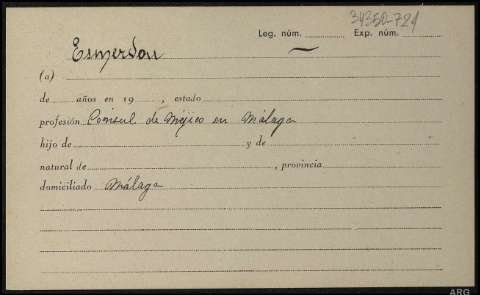 34350-724
Leg. núm. Exp. núm.
Esmerdou
(a)
de años en 19 , estado
profesión Cónsul de Méjico en Málaga
hijo de y de
natural de , provincia
domiciliado Málaga
ARG